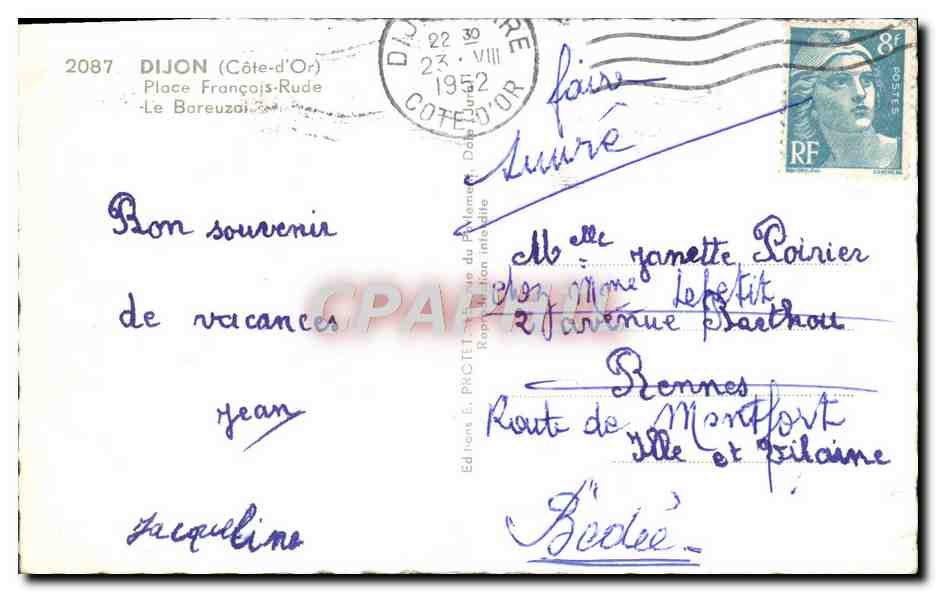 2087 DIJON (Côte-d'Or)
Place François-Rude
Le Bareuzai
22 30
23 · VIII
1952
COTE-D'OR
8f
POSTES
RF
faire
suivre
Bon souvenir
de vacances
Jean
Jacqueline
Melle Janette Poirier
chez Mme Lepetit
2 avenue Barthou
Rennes
Route de Montfort
Ille et Vilaine
Bédée
Editions E. PROTET, Rue du Parlement, Dole (Jura)
Reproduction interdite
CPAPHIL